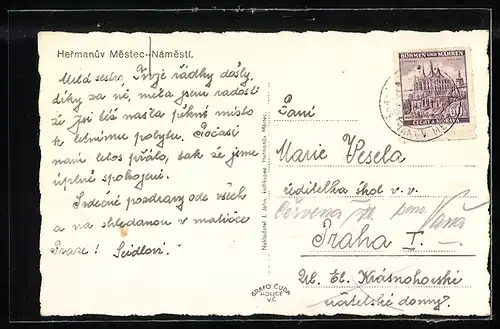 Heřmanův Městec-Náměstí.
Milá sestro, Tvoje řádky došly,
díky za ně, měla jsem radost
že jsi též našla pěkné místo
k letnímu pobytu. Počasí
nám letos přálo, tak že jsme
úplně spokojeni.
Srdečné pozdravy ode všech
a na shledanou v matičce
Praze! Seidlovi.
BÖHMEN UND MÄHREN
60
ČECHY A MORAVA
Paní
Marie Veselá
ředitelka škol v. v.
Červená
Praha I.
Ul. El. Krásnohorské
učitelské domy.
GRAFO ČUDA
HOLICE
VČ